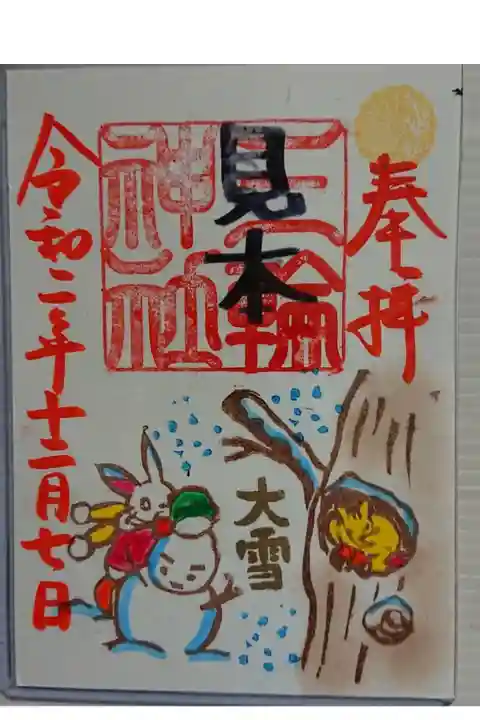 奉拝
三輪
神社
見本
大雪
令和二年十二月七日